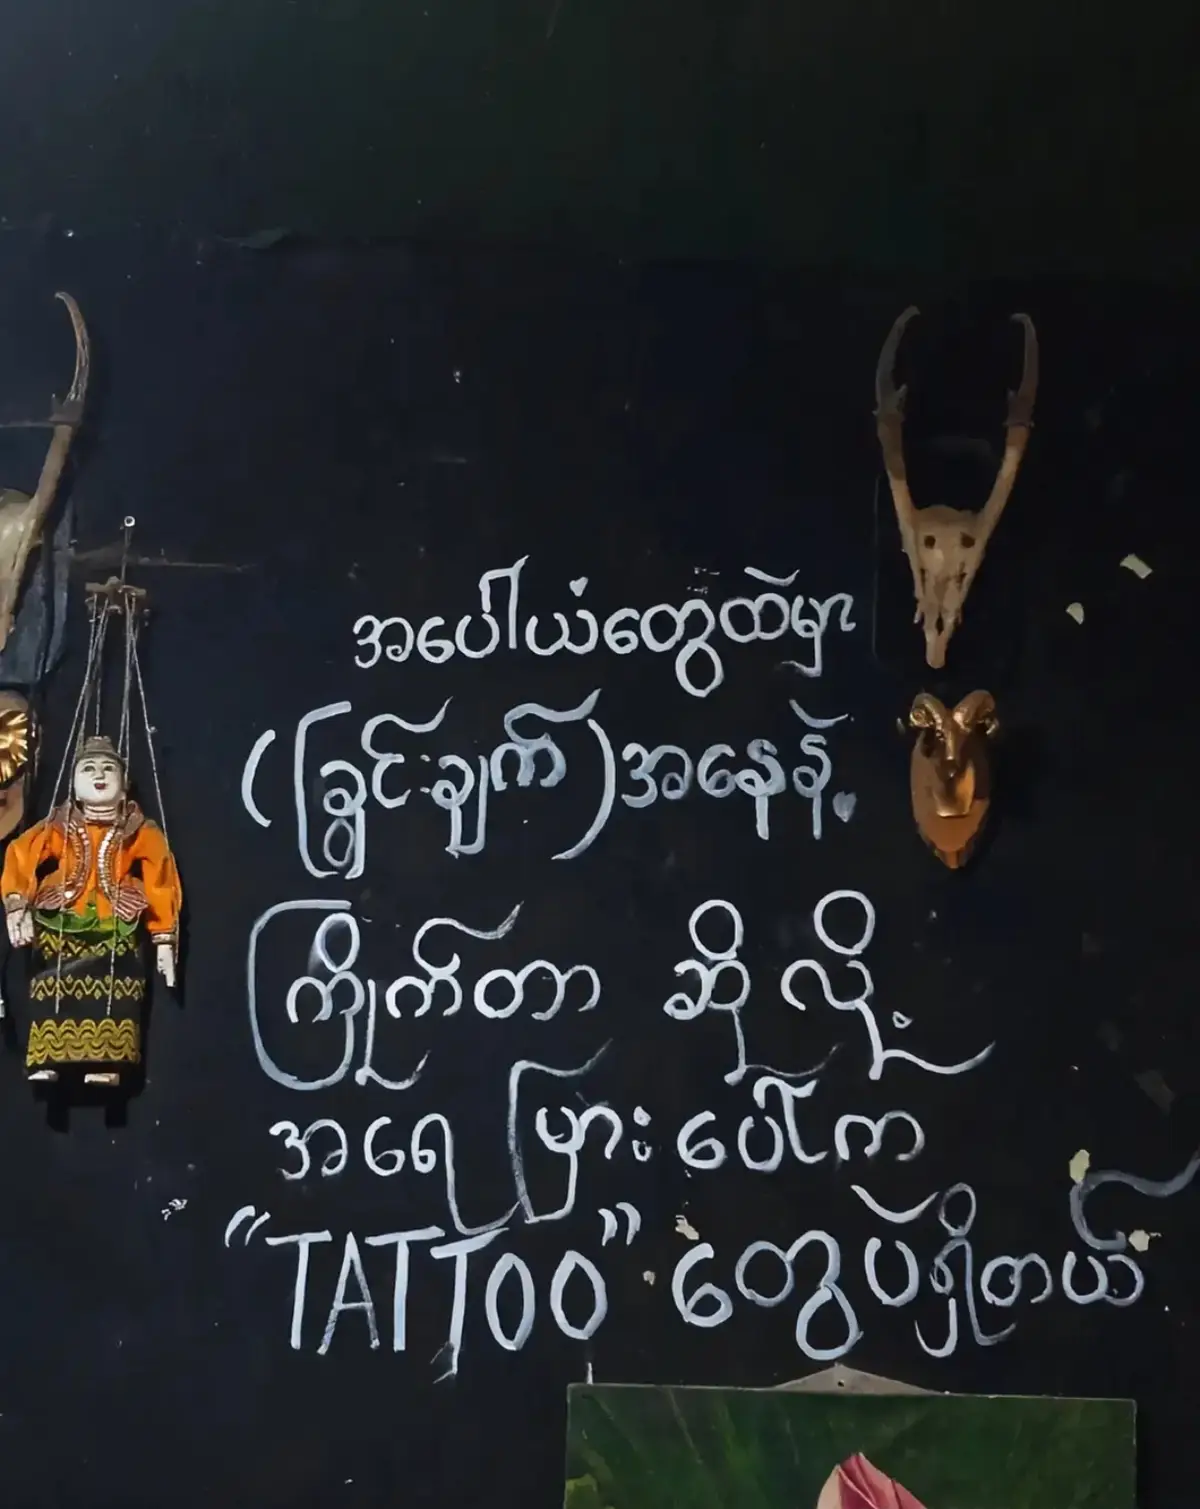 အပေါ်ယံတွေထဲမှာ
(ခြွင်းချက်)အနေနဲ့
ကြိုက်တာ ဆိုလို့
အရေပြားပေါ်က
“TATTOO” တွေပဲရှိတယ်